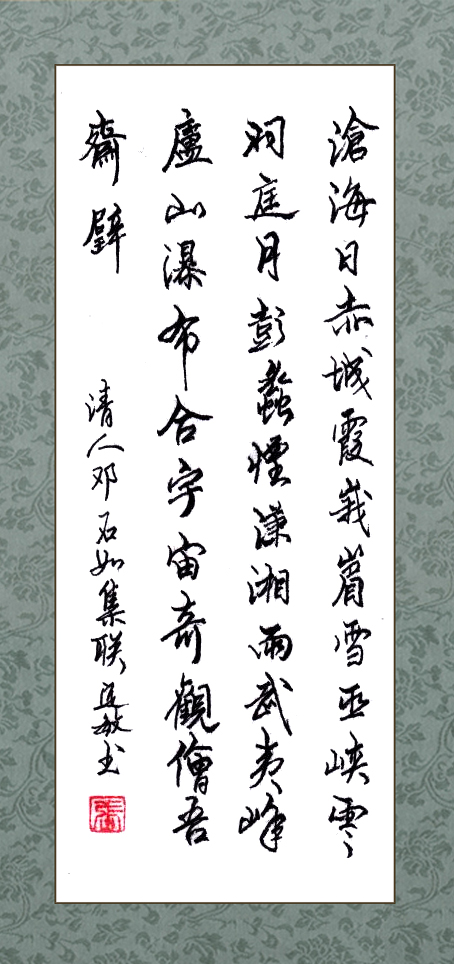 滄海日赤城霞峨眉雪巫峽雲
洞庭月彭蠡煙瀟湘雨武夷峰
廬山瀑布合宇宙奇觀繪吾
齋壁
清人邓石如集联敏书